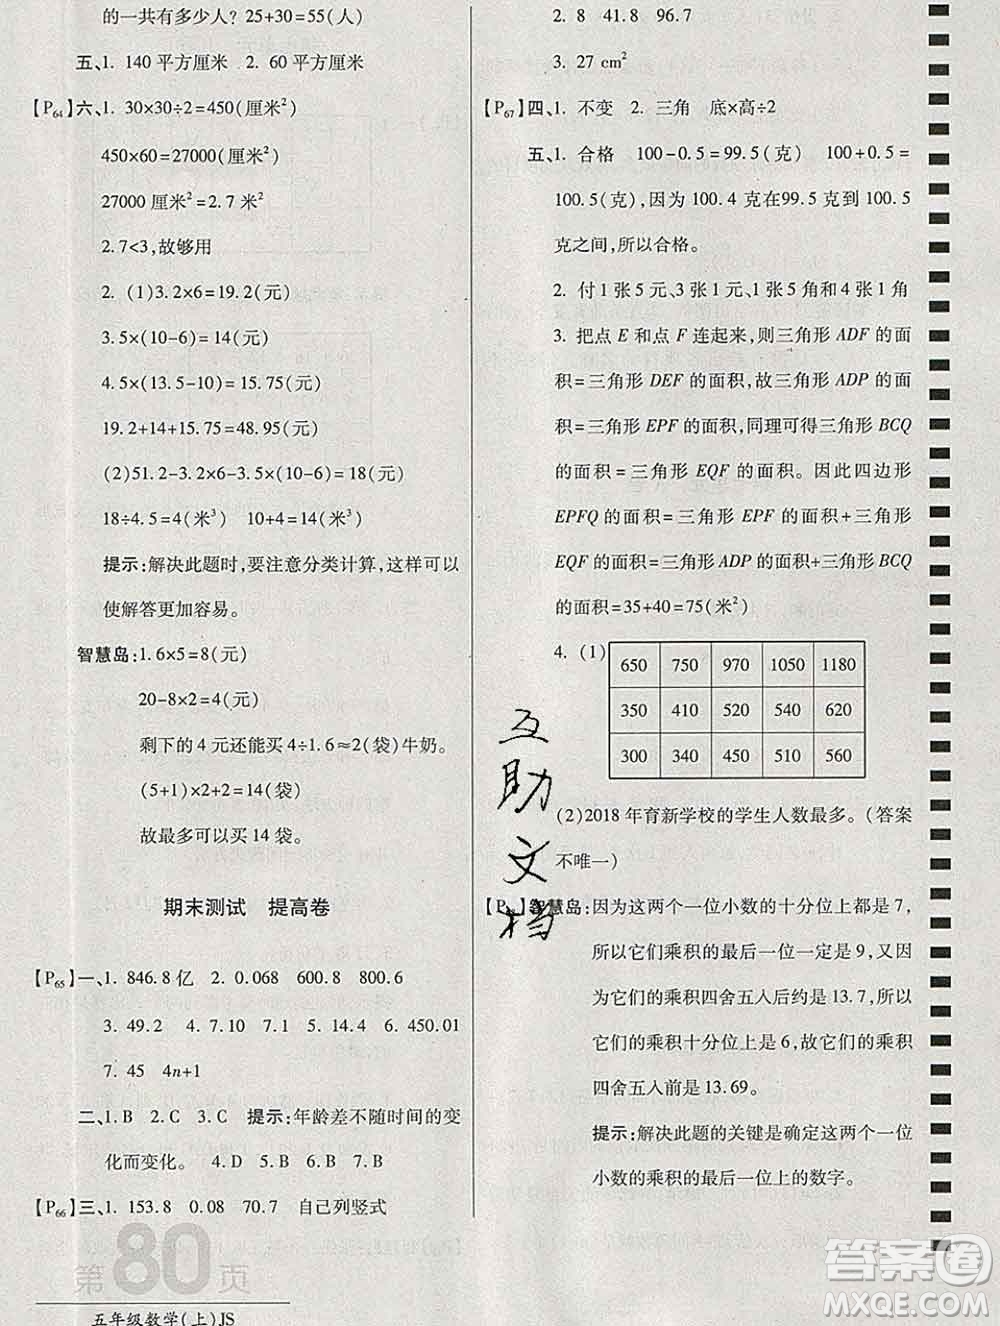 的一共有多少人? 25+30=55(人)
五、1. 140 平方厘米 2. 60 平方厘米
【P64】六、1. 30×30÷2=450(厘米²)
450×60=27000(厘米²)
27000 厘米²=2.7 米²
2.7<3,故够用
2. (1)3.2×6=19.2(元)
3.5×(10-6)=14(元)
4.5×(13.5-10)=15.75(元)
19.2+14+15.75=48.95(元)
(2)51.2-3.2×6-3.5×(10-6)=18(元)
18÷4.5=4(米³) 10+4=14(米³)
提示:解决此题时,要注意分类计算,这样可以
使解答更加容易。
智慧岛:1.6×5=8(元)
20-8×2=4(元)
剩下的 4 元还能买 4÷1.6≈2(袋)牛奶。
(5+1)×2+2=14(袋)
故最多可以买 14 袋。
期末测试 提高卷
【P65】一、1. 846.8 亿 2. 0.068 600.8 800.6
3. 49.2 4. 7.10 7.1 5. 14.4 6. 450.01
7. 45 4n+1
二、1. B 2. C 3. C 提示:年龄差不随时间的变
化而变化。 4. D 5. B 6. D 7. B
【P66】三、1. 153.8 0.08 70.7 自己列竖式
第80页
五年级数学(上)JS
2. 8 41.8 96.7
3. 27 cm²
【P67】四、1. 不变 2. 三角 底×高÷2
五、1. 合格 100-0.5=99.5(克) 100+0.5=
100.5(克),因为 100.4 在99.5 克到 100.5
克之间,所以合格。
2. 付 1 张 5 元、3 张 1 元、1 张 5 角和 4 张 1 角
3. 把点 E 和点 F 连起来,则三角形 ADF 的面
积=三角形 DEF 的面积,故三角形 ADP 的面
积=三角形 EPF 的面积,同理可得三角形 BCQ
的面积=三角形 EQF 的面积。因此四边形
EPFQ 的面积=三角形 EPF 的面积+三角形
EQF 的面积=三角形 ADP 的面积+三角形 BCQ
的面积=35+40=75(米²)
4. (1)
650 750 970 1050 1180
350 410 520 540 620
300 340 450 510 560
(2)2018 年育新学校的学生人数最多。(答案
不唯一)
智慧岛:因为这两个一位小数的十分位上都是 7,
所以它们乘积的最后一位一定是 9,又因
为它们的乘积四舍五入后约是 13.7,所以
它们的乘积十分位上是 6,故它们的乘积
四舍五入前是 13.69。
提示:解决此题的关键是确定这两个一位
小数的乘积的最后一位上的数字。
互助文档
答案圈
MXQE.COM